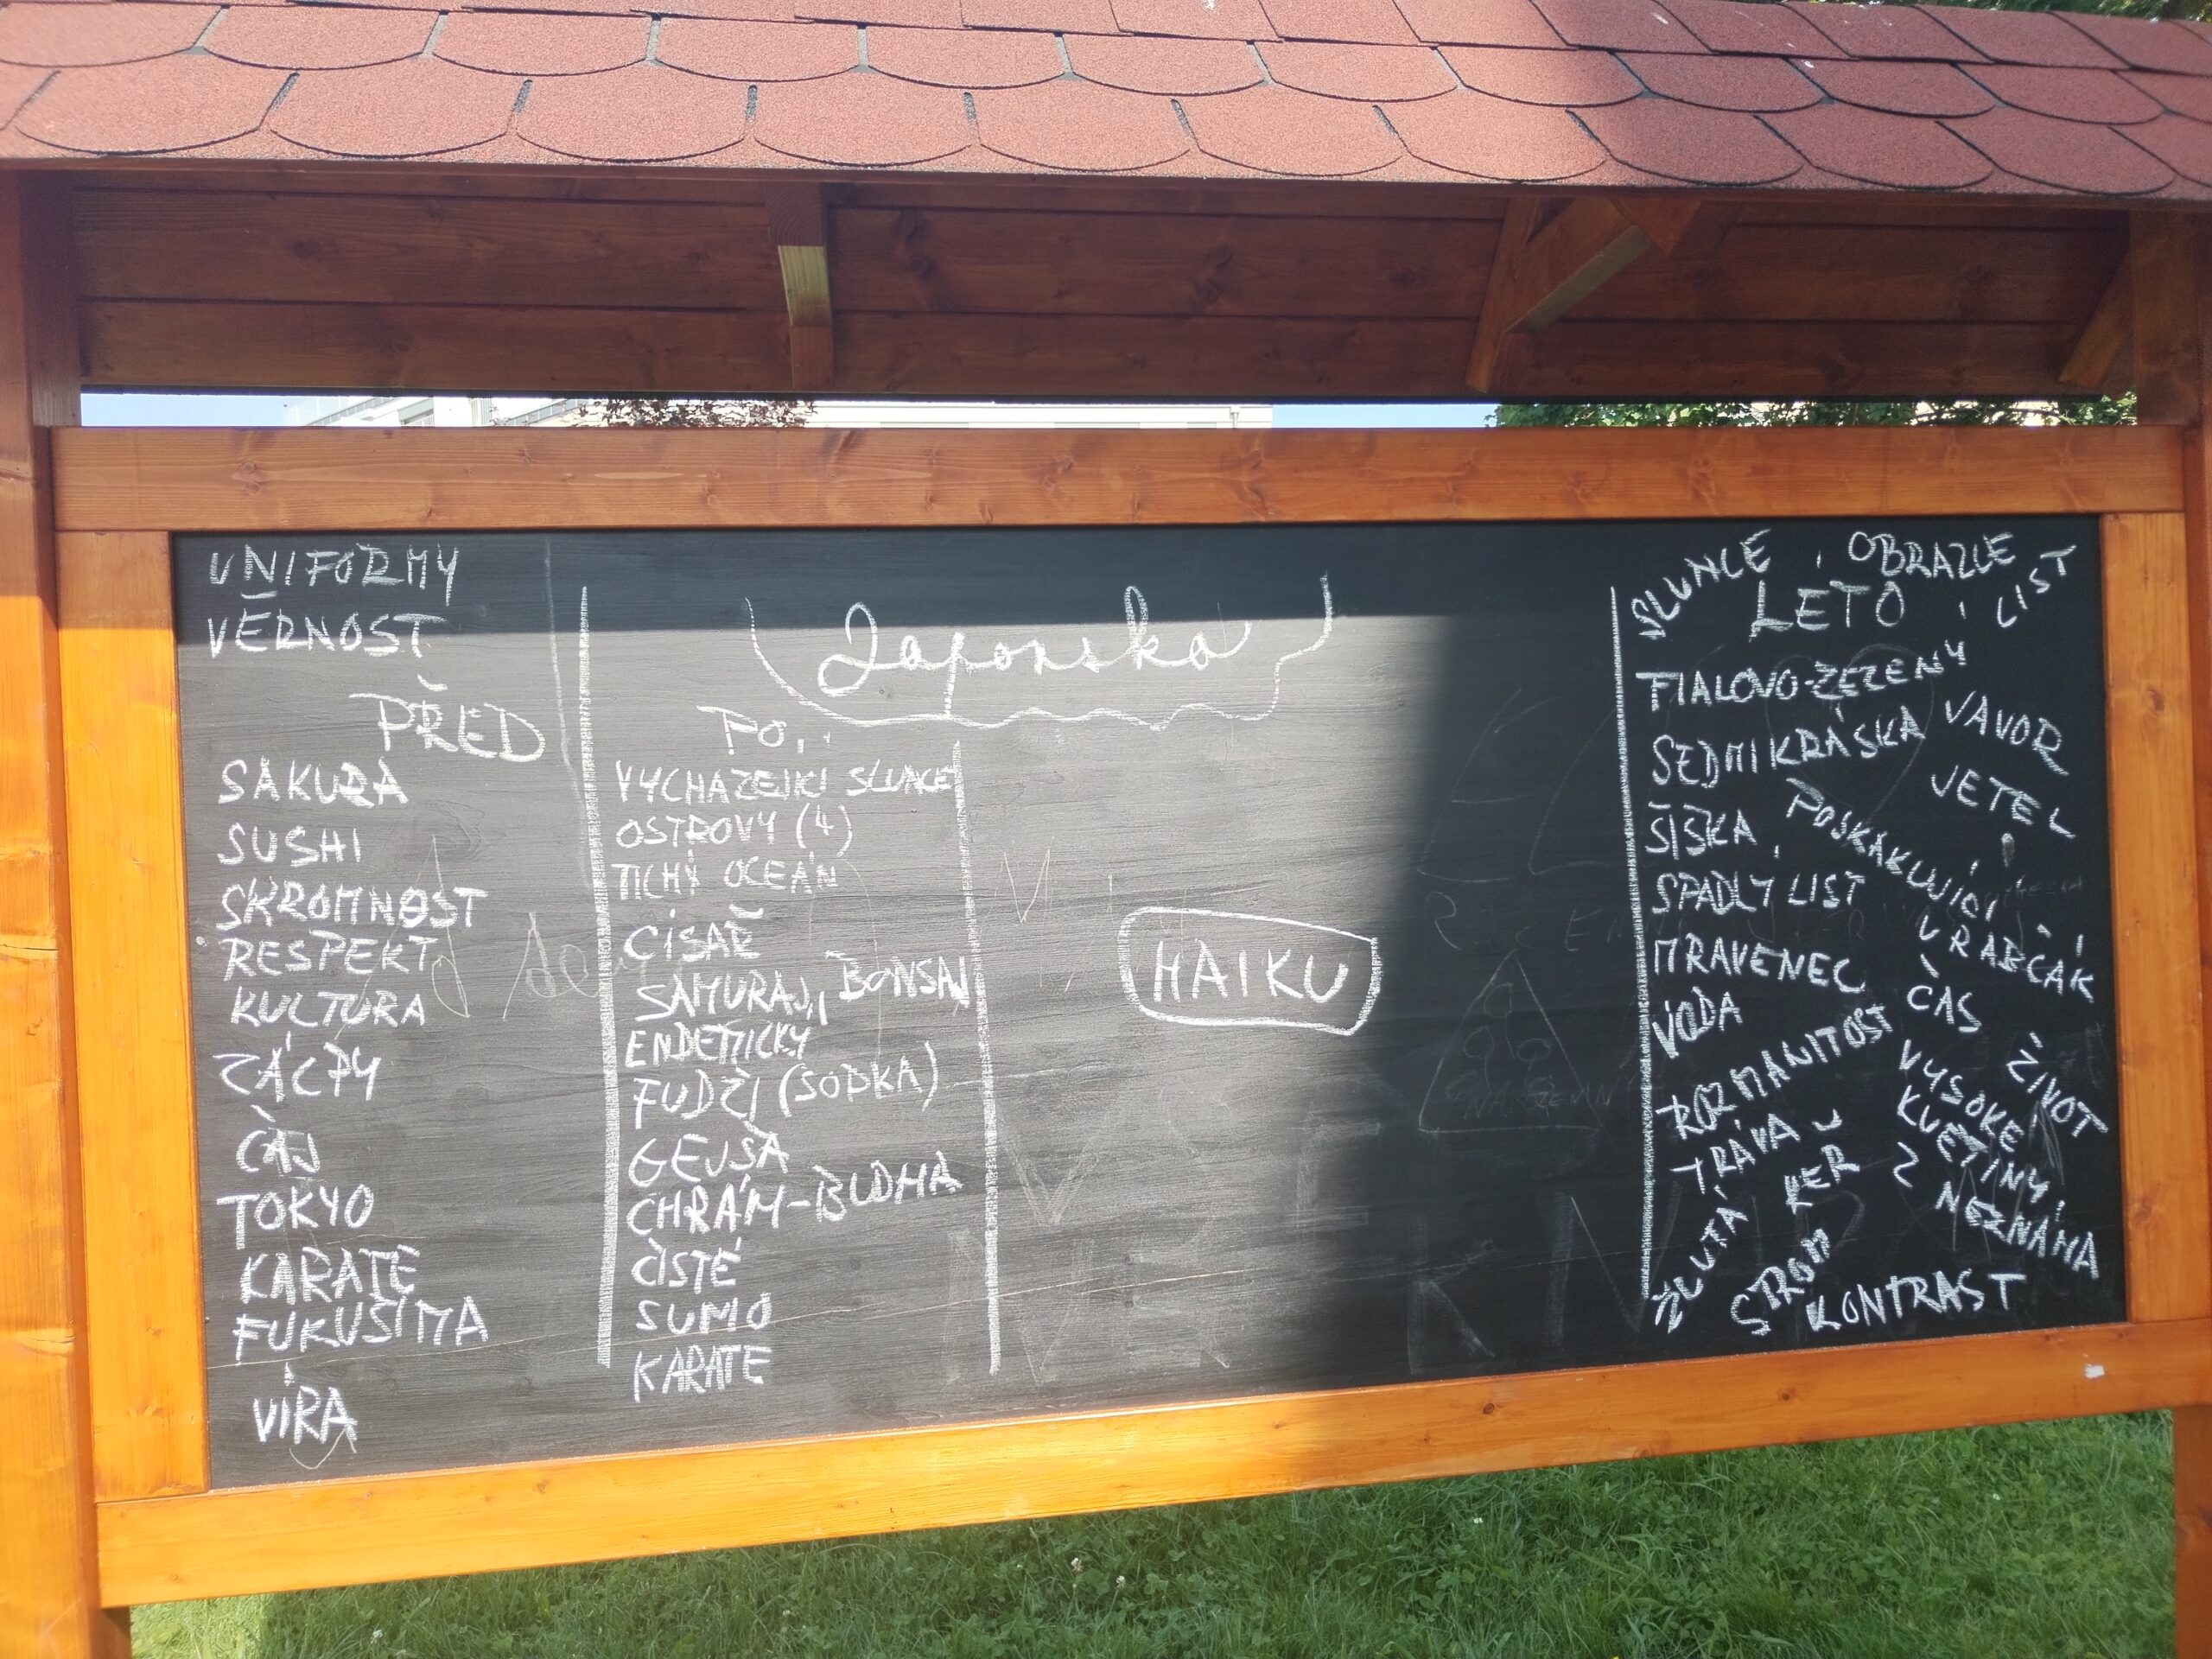 UNIFORMY
VĚRNOST
PŘED
SAKURA
SUSHI
SKROMNOST
RESPEKT
KULTURA
ZÁCPY
ČAJ
TOKYO
KARATE
FUKUŠIMA
VÍRA
Japonsko
PO
VYCHÁZEJÍCÍ SLUNCE
OSTROVY (4)
TICHÝ OCEÁN
CÍSAŘ
SAMURAJ, BONSAJ
ENDEMICKY
FUDŽI (SOPKA)
GEJŠA
CHRÁM-BUDHA
ČISTÉ
SUMO
KARATE
HAIKU
SLUNCE
OBRAZCE
LÉTO
LIST
FIALOVO-ZELENÝ
VAVOR
SEDMIKRÁSKA
JETEL
ŠIŠKA
POSKAKUJÍCÍ
VRABČÁK
SPADLÝ LIST
MRAVENEC
ČAS
VODA
ROZMANITOST
ŽIVOT
VYSOKÉ
KVĚTINY
TRÁVA
KEŘ
Z NEZNÁMA
ŽLUTÁ
STROM
KONTRAST